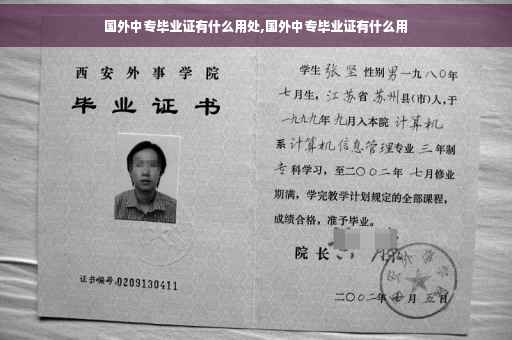 国外中专毕业证有什么用处,国外中专毕业证有什么用
西安外事学院
毕业证书
证书编号:0209130411
学生 张坚 性别 男 一九八〇年
七月生，江苏省 苏州县(市)人,于
一九九九年 九月入本院 计算机
系 计算机信息管理专业 三 年制
专科学习，至二〇〇二年 七月修业
期满，学完教学计划规定的全部课程，
成绩合格，准予毕业。
院长
二〇〇二年 月 五日